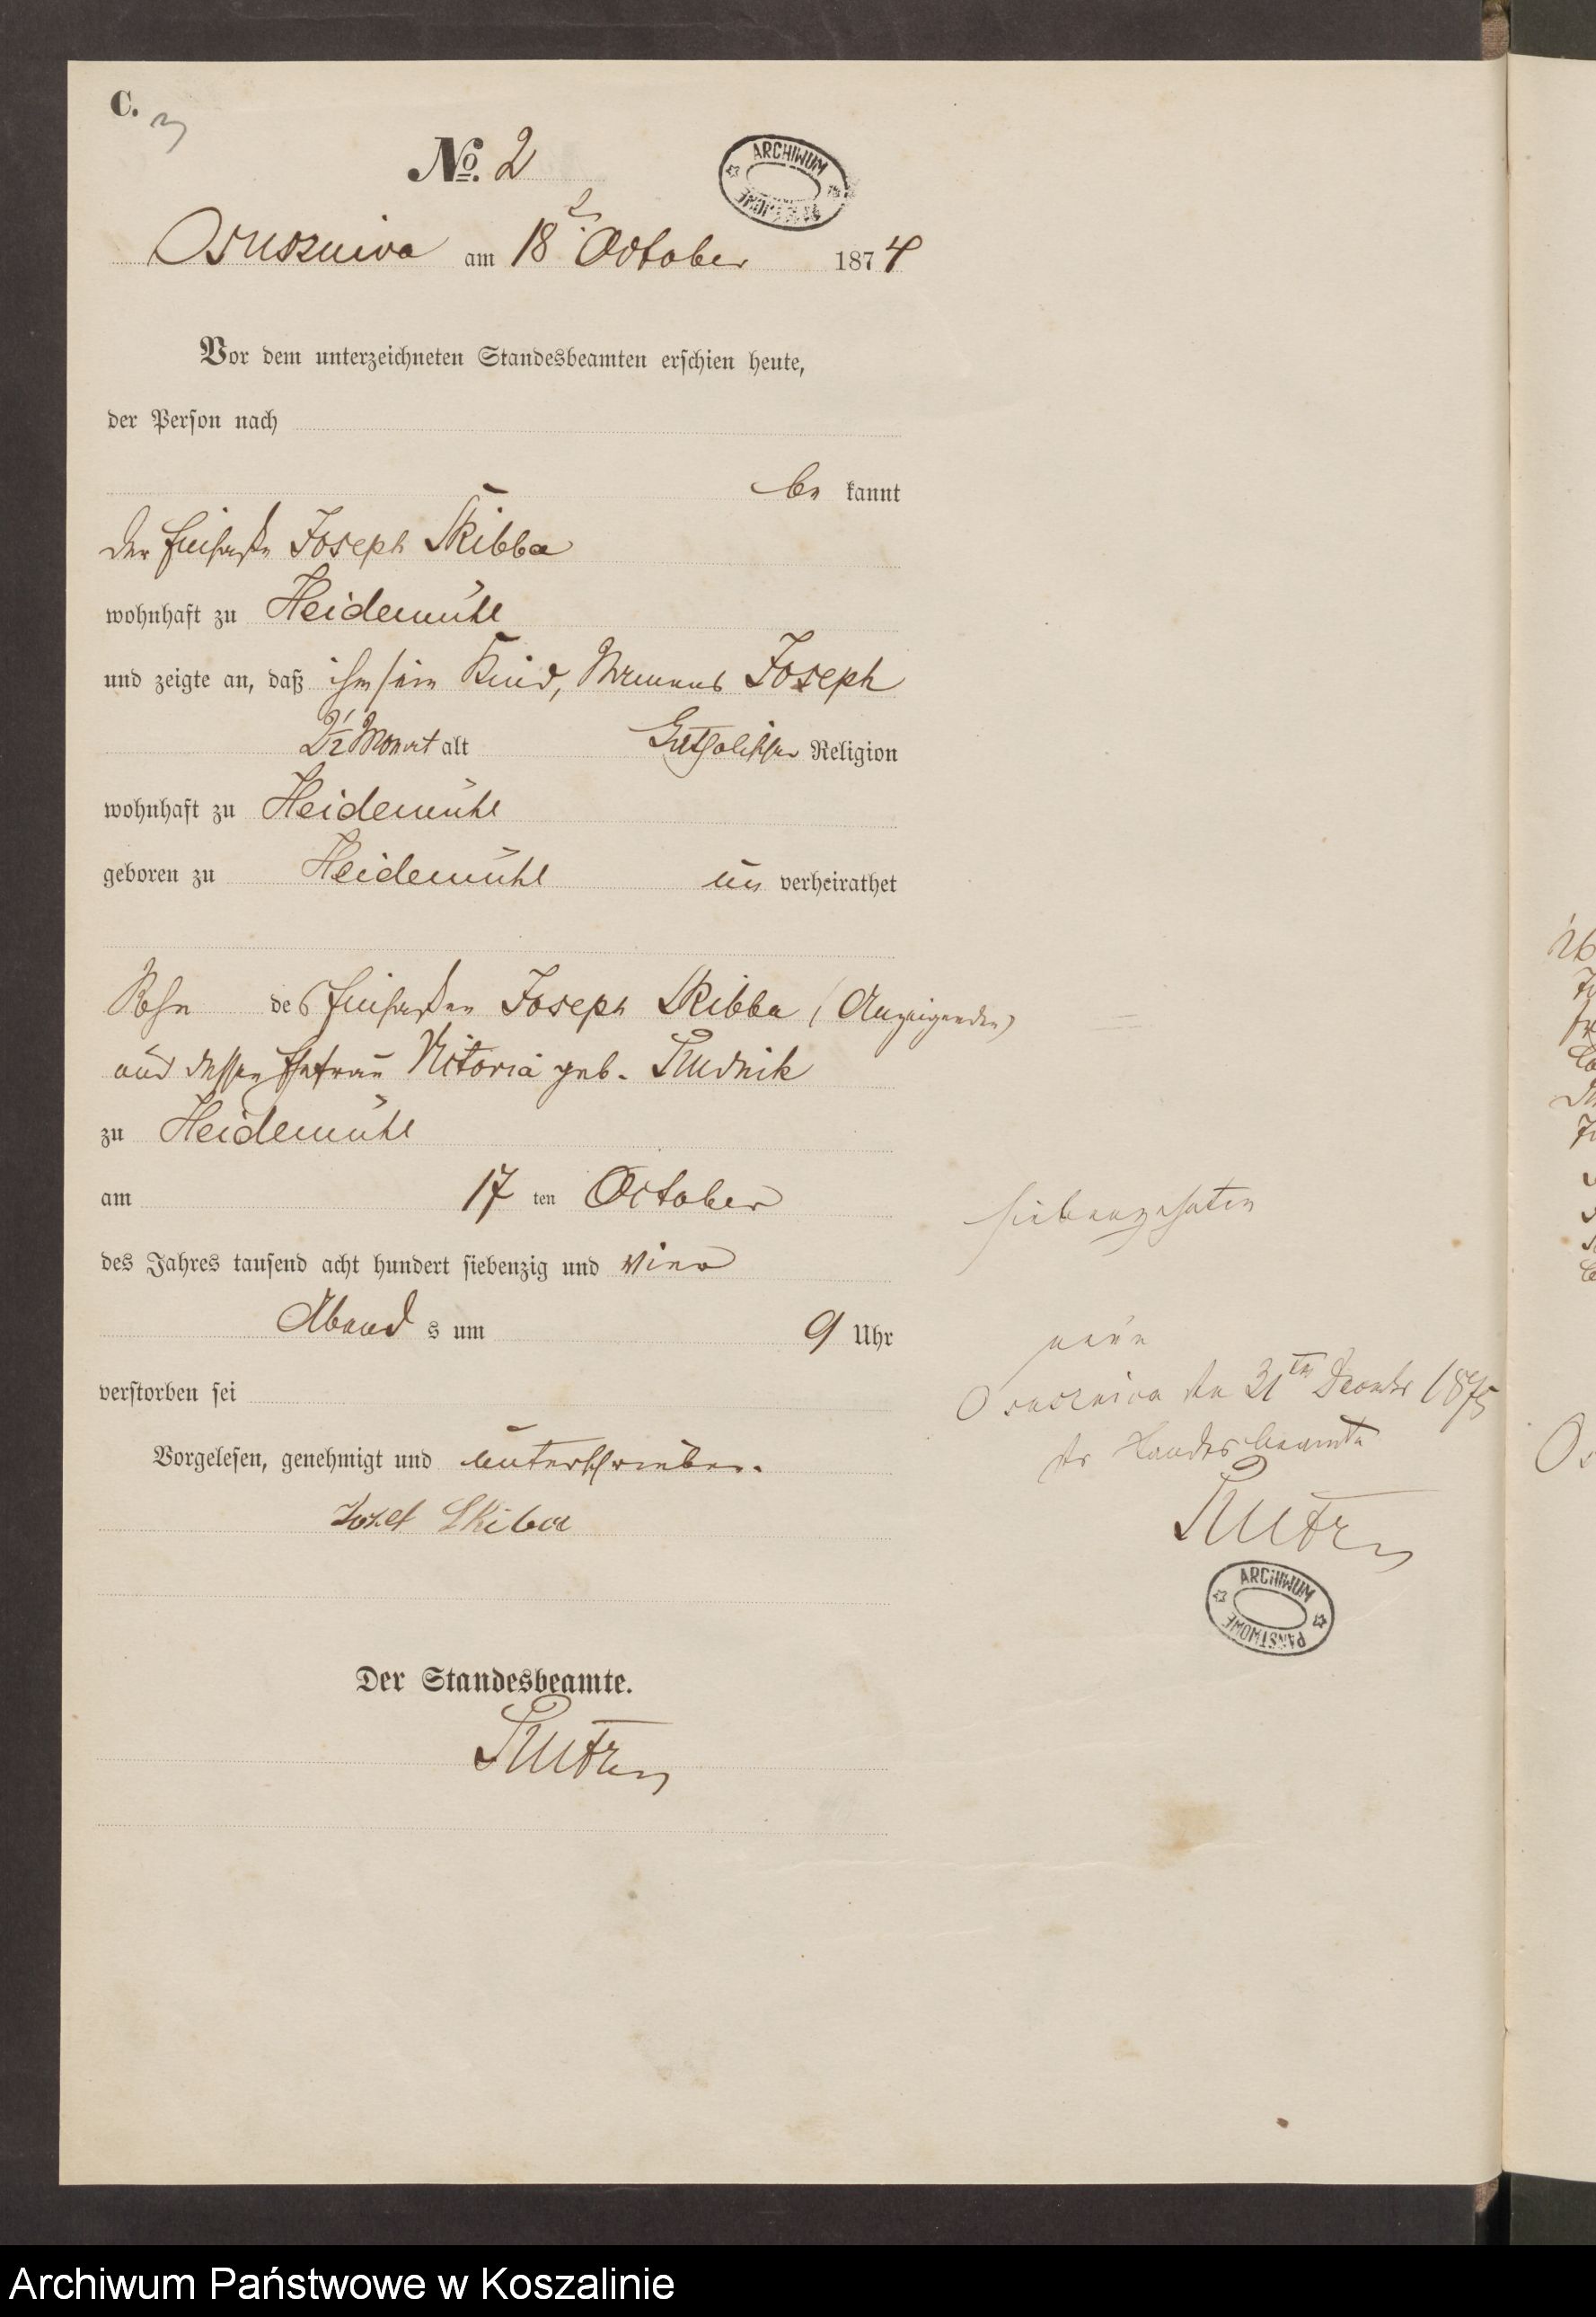 C.
3
No. 2
ARCHIWUM PAŃSTWOWE
Osuszniva am 18 t October 1874
Vor dem unterzeichneten Standesbeamten erschien heute,
der Person nach
be kannt
der Einsaße Joseph Skibba
wohnhaft zu Heidemühl
und zeigte an, daß ihm sein Kind, Namens Joseph
2 1/2 Monat alt Katholischer Religion
wohnhaft zu Heidemühl
geboren zu Heidemühl un verheirathet
Sohn des Einsaßen Joseph Skibba (Anzeigenden)
und dessen Ehefrau Vitoria geb. Rudnik
zu Heidemühl
am 17 ten October
siebenzehnten
des Jahres tausend acht hundert siebenzig und vier
Abend s um 9 Uhr
neun
verstorben sei
Osuszniva den 31ten December 1875
Vorgelesen, genehmigt und unterschrieben.
der Standesbeamte
Jozef Skiba
ARCHIWUM PAŃSTWOWE
Der Standesbeamte.
Archiwum Państwowe w Koszalinie